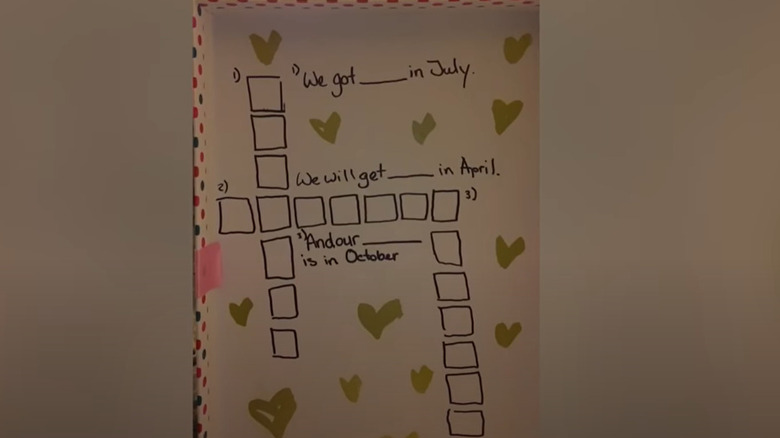 1) 1) We got ____ in July.
We will get ____ in April.
2) 3)
3) And our ____
is in October